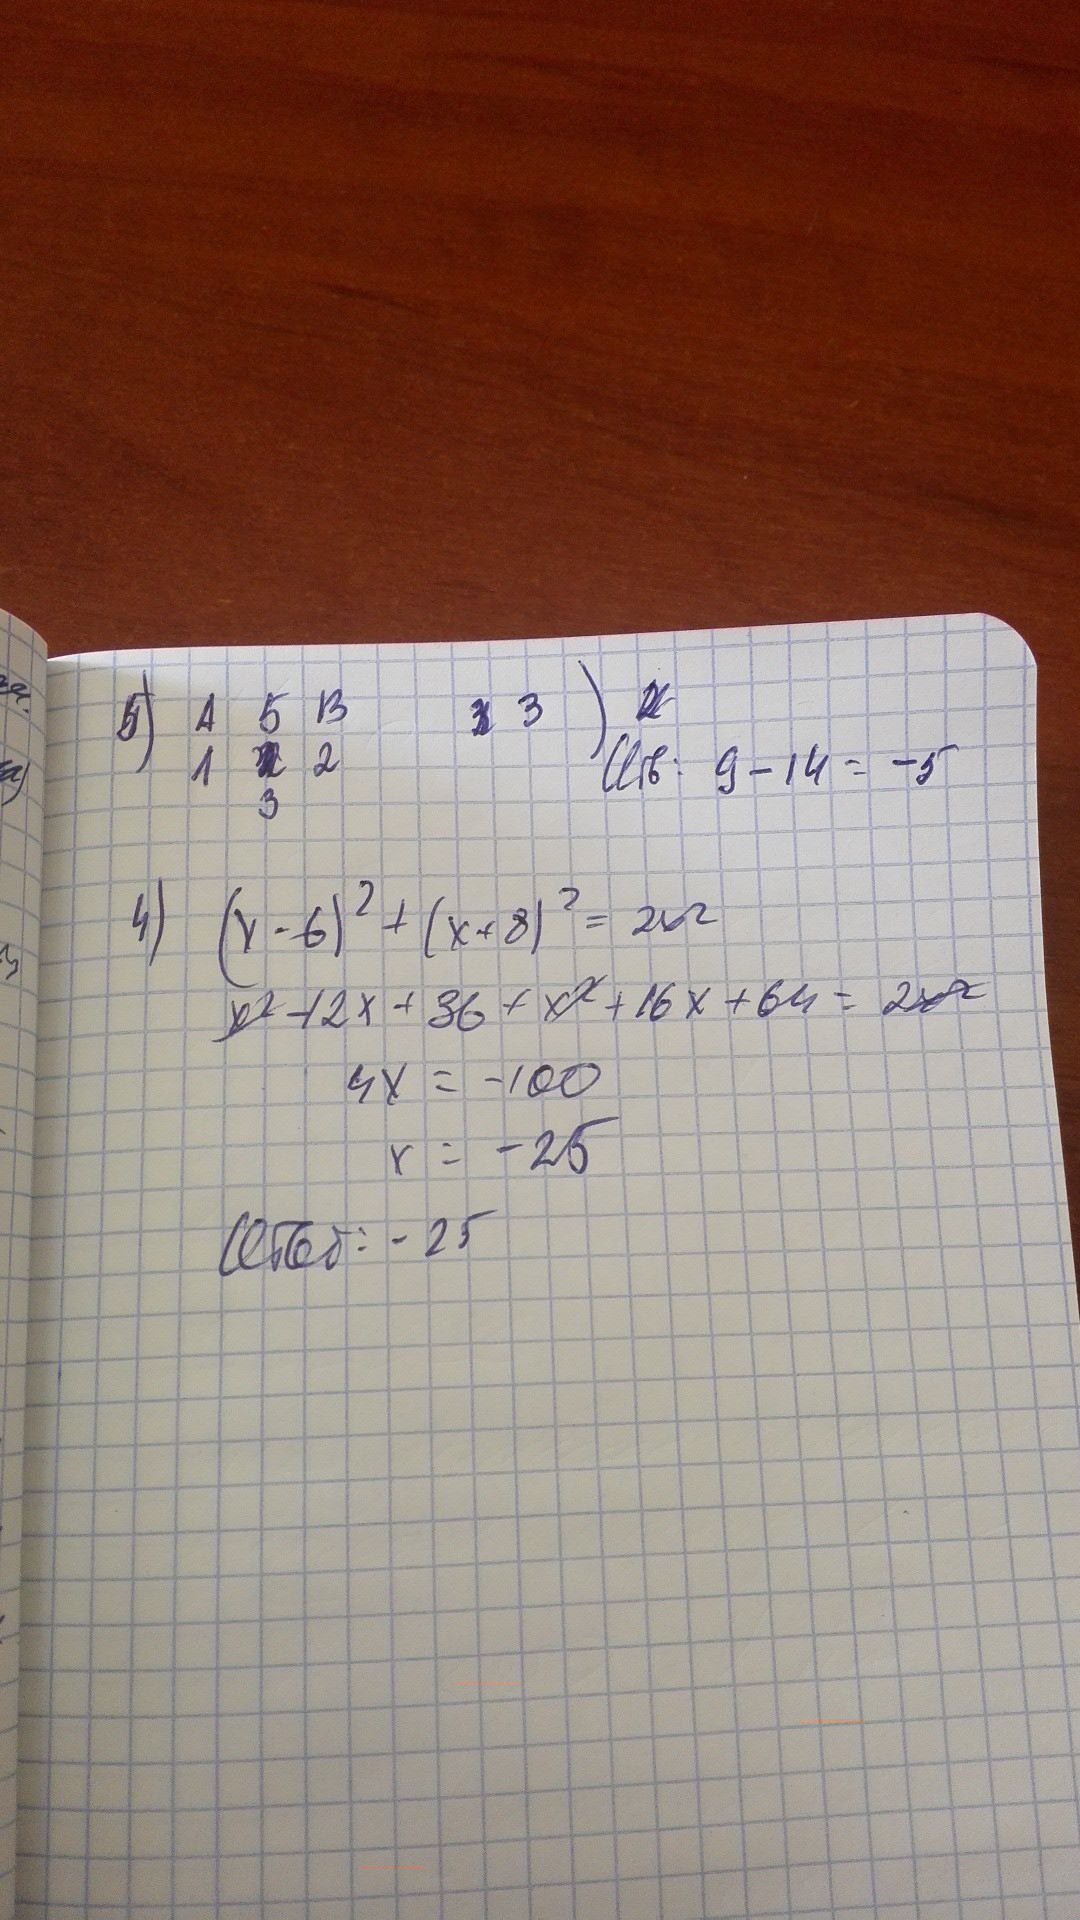 5) А Б В 3
1 2
3
) Отв: 9 - 14 = -5
4) (x - 6)² + (x + 8)² = 2x²
x² - 12x + 36 + x² + 16x + 64 = 2x²
4x = -100
x = -25
Ответ: - 25